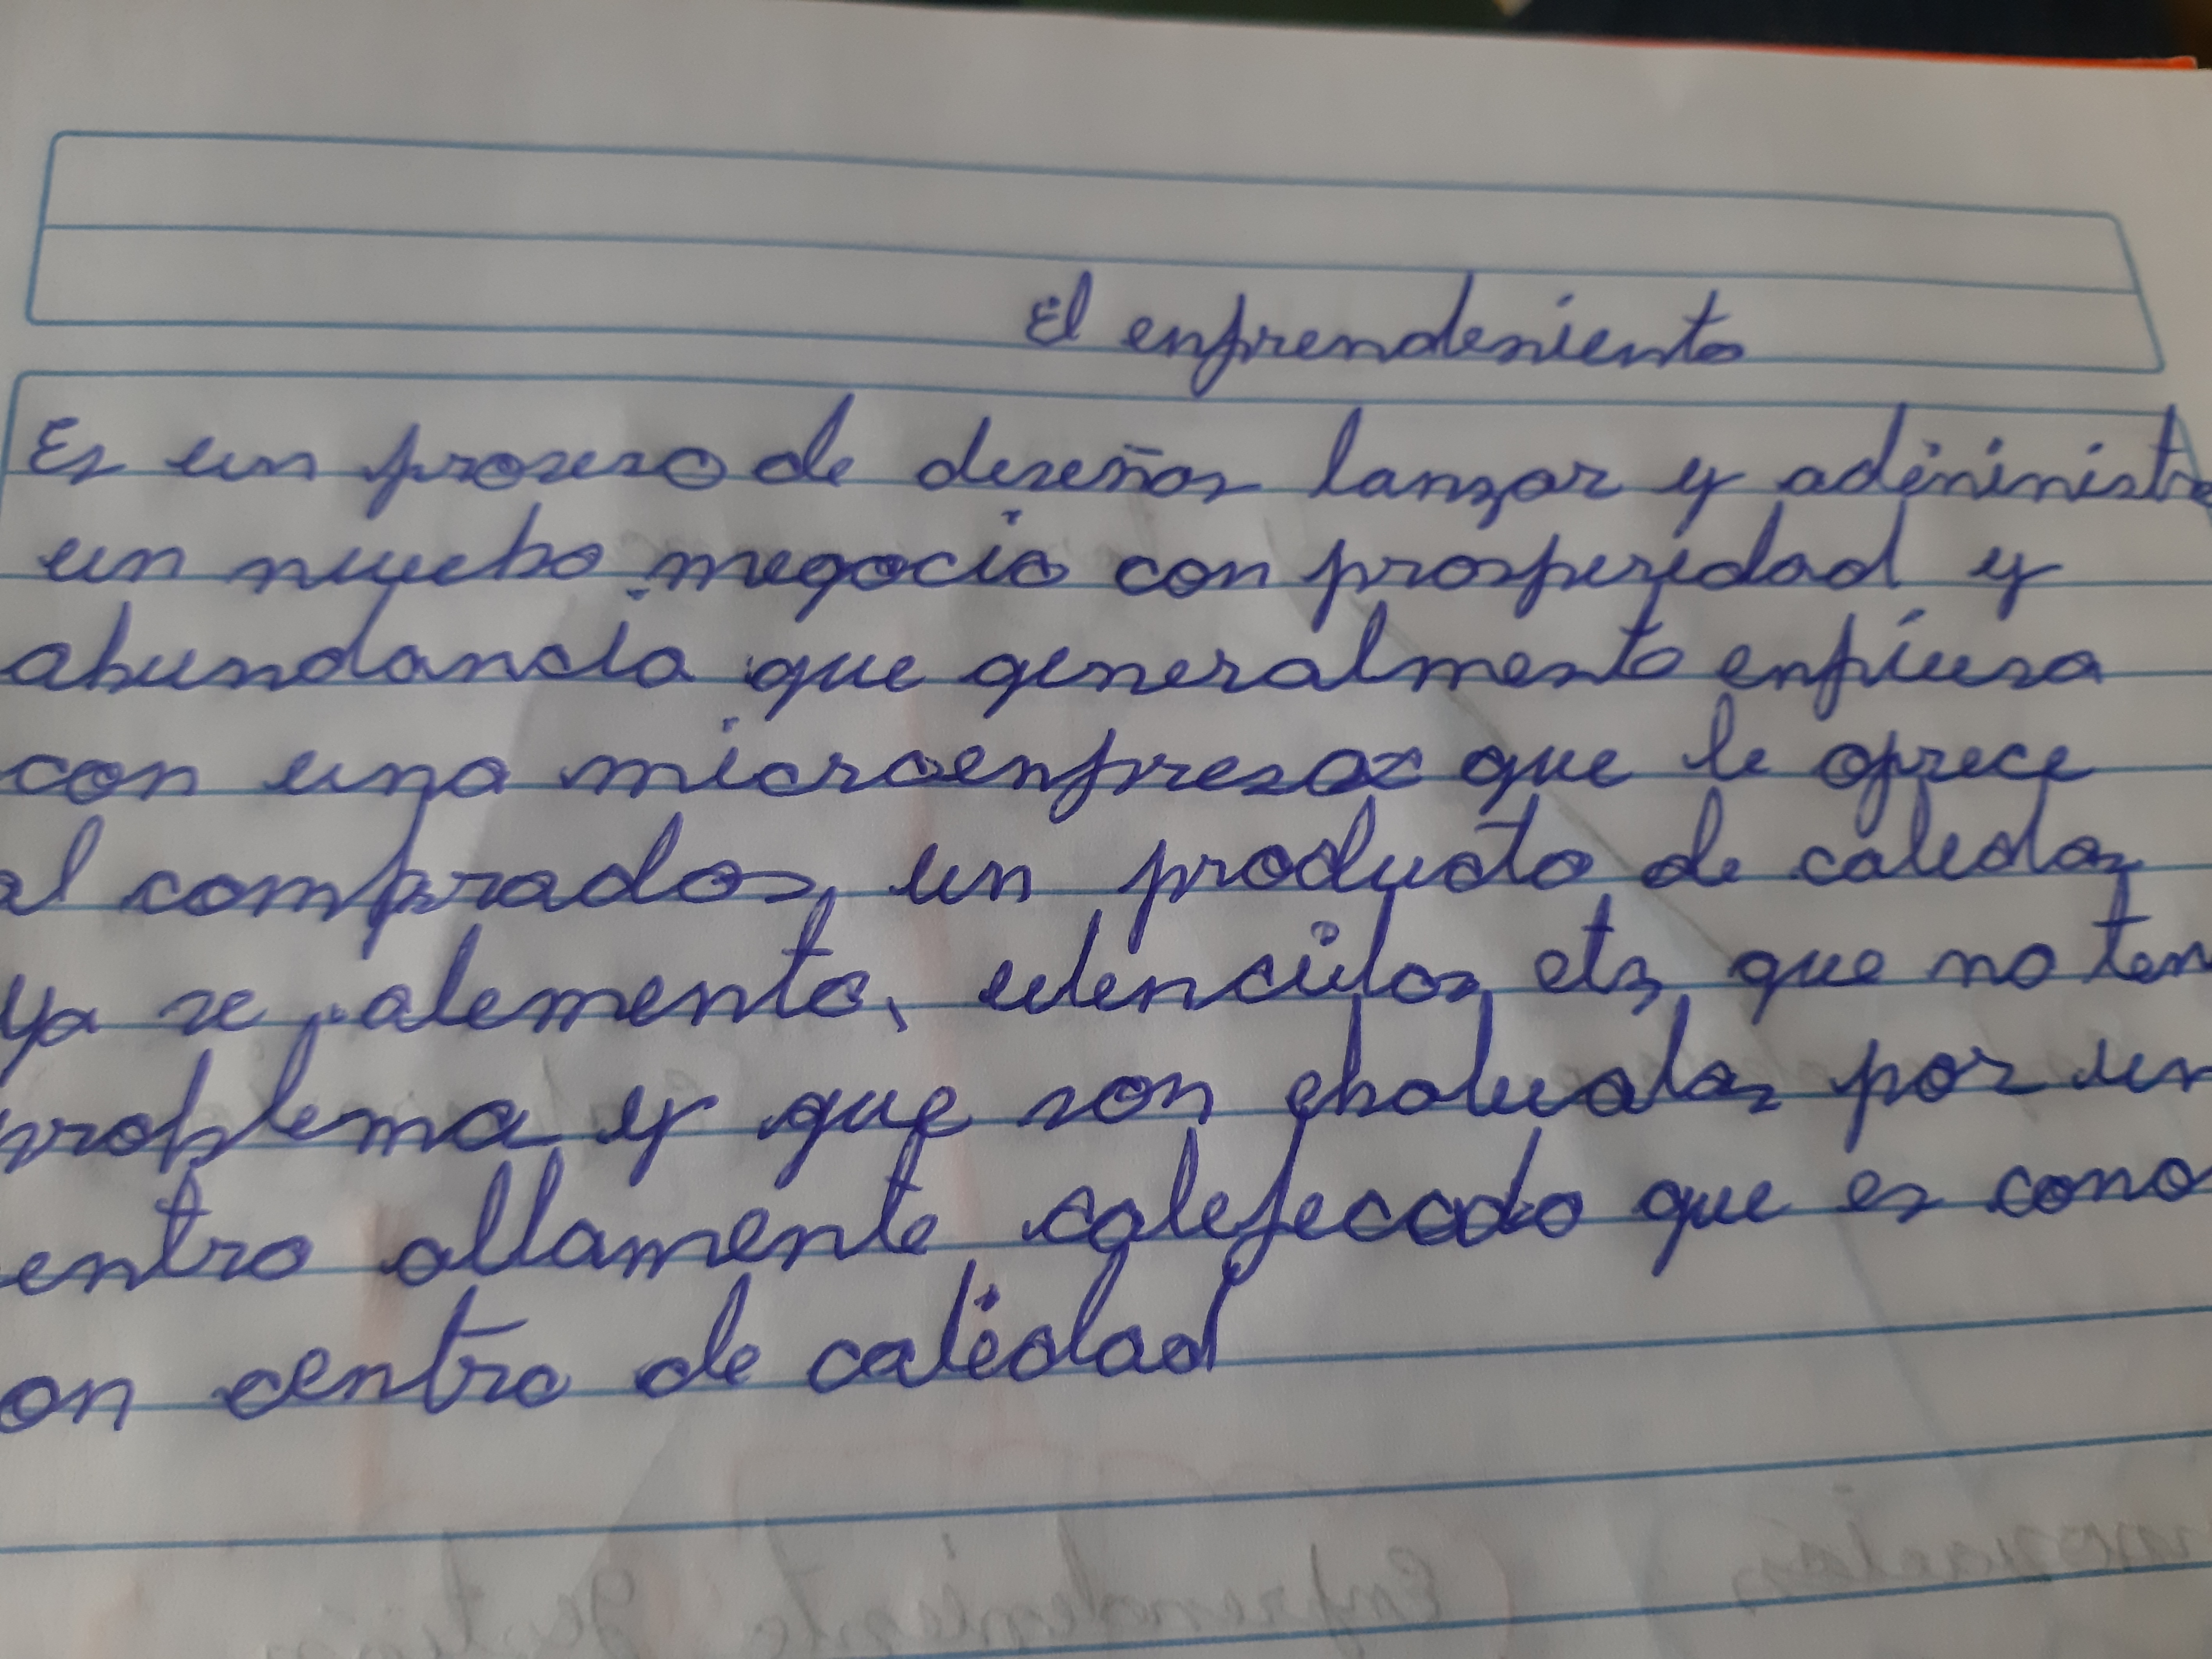 El enfrendeniento
Es un proseso de deseñar lanzar y adeninistra
un nuebo negocio con prosperidad y
abundancia que generalmento enpiesa
con una microenpresa que le ofrece
al comprador, un producto de caledaz
ya se alemento, utencilos ets que no ten
problema y que son ebalualas por un
entro altamente calefecado que es cono
on centro de caledad